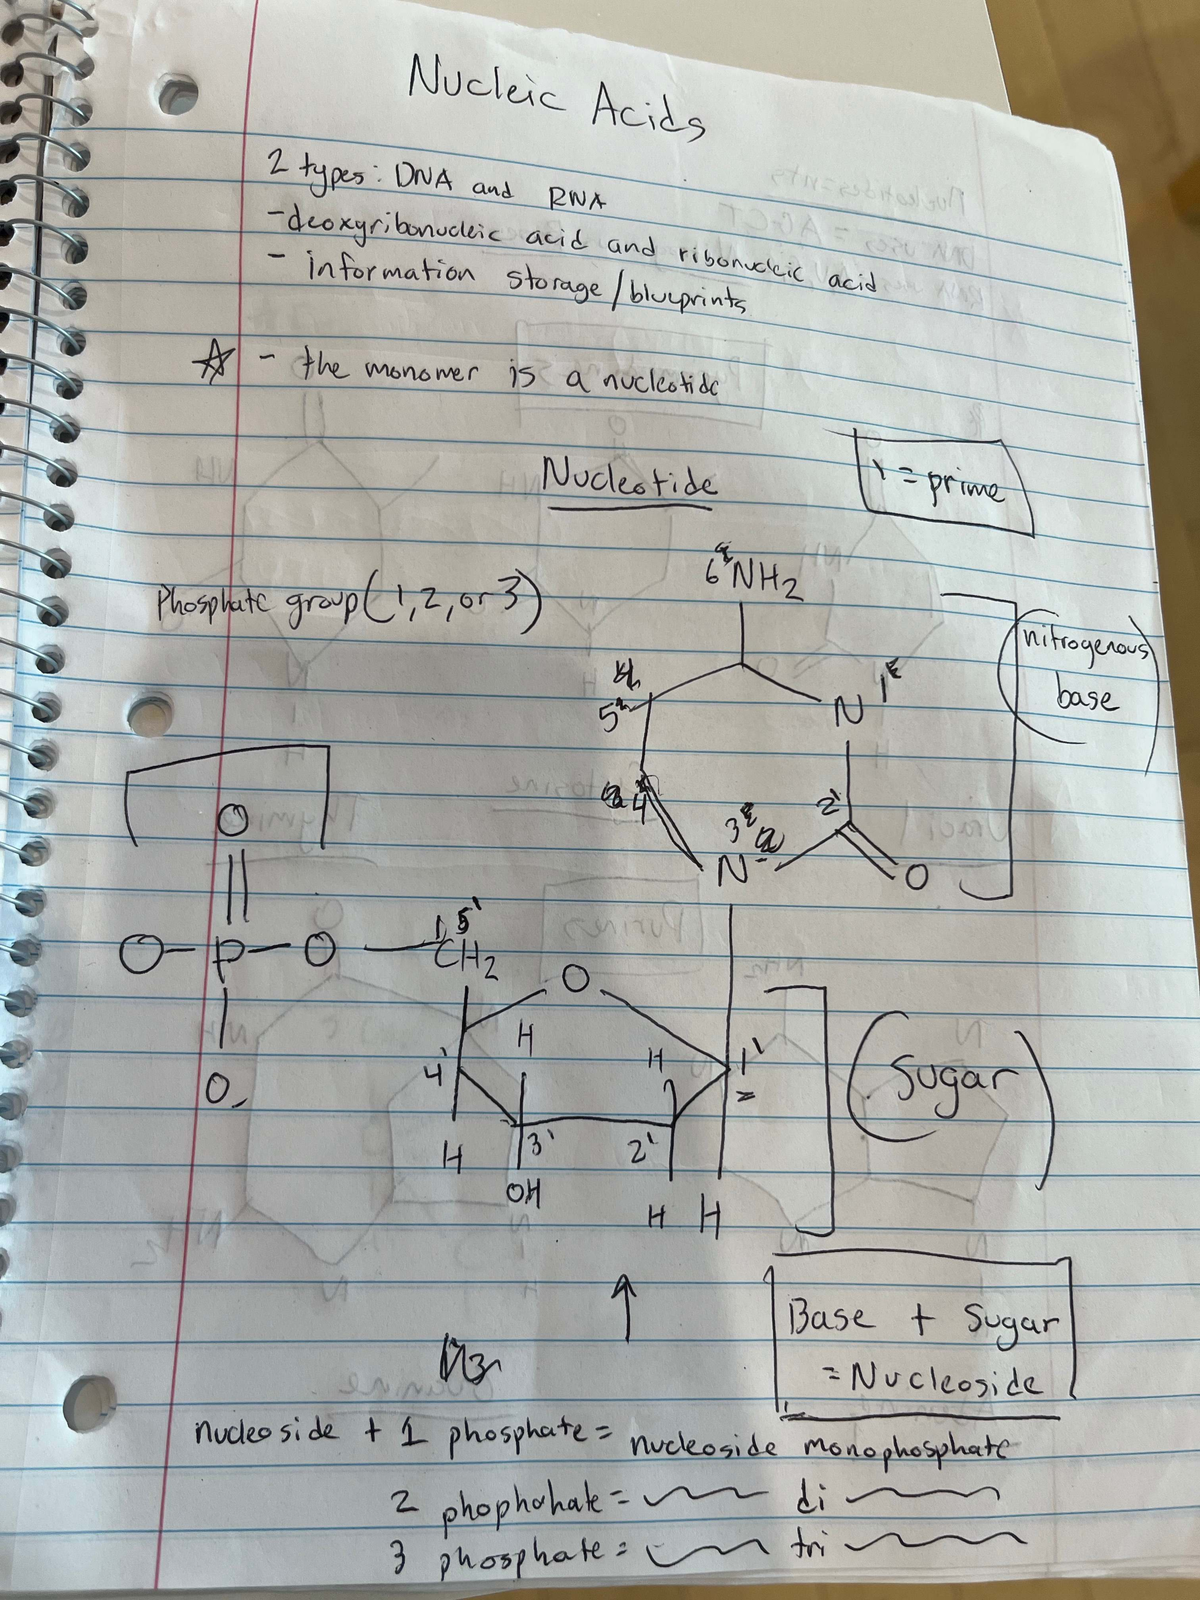 Nucleic Acids
2 types: DNA and RNA
- deoxyribonucleic acid and ribonucleic acid
- information storage/blueprints
☆ - the monomer is a nucleotide
Nucleotide
' = prime
Phosphate group (1, 2, or 3)
6 NH2
nitrogenous
base
5
N 1
4
2'
3
N
O
O
O-P-O
5'
CH2
O
O
H
H
1'
4'
Sugar
3'
2'
H
OH
H
H
Base + Sugar
= Nucleoside
nucleoside + 1 phosphate = nucleoside monophosphate
2 phophohate = di
3 phosphate = tri